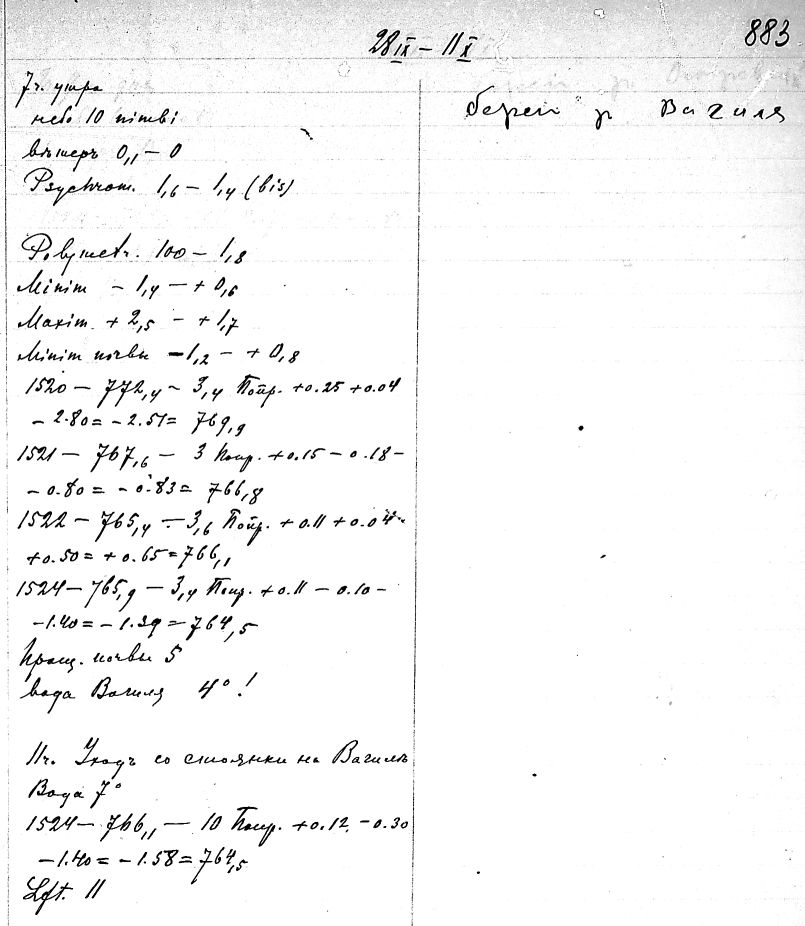 883
28 IX – 11 X
7ч. утра
небо 10 nimbi
вѣтеръ 0,1 – 0
Psychrom. 1,6 – 1,4 (bis)
Polymetr. 100 – 1,8
Minim – 1,4 – + 0,6
Maxim. + 2,5 – + 1,7
Minim почвы – 1,2 – + 0,8
1520 – 772,4 – 3,4 Попр. +0.25 +0.04
– 2.80 = – 2.51 = 769,9
1521 – 767,6 – 3 Попр. +0.15 – 0.18 –
– 0.80 = – 0.83 = 766,8
1522 – 765,4 – 3,6 Попр. +0.11 +0.04
+0.50 = +0.65 = 766,1
1524 – 765,9 – 3,4 Попр. +0.11 – 0.10 –
–1.40 = –1.39 = 764,5
почвы 5
вода Вагиля 4° !
11ч. Уходъ со стоянки на Вагилѣ
Вода 7°
1524 – 766,1 – 10 Попр. +0.12 – 0.30
–1.40 = –1.58 = 764,5
Lft. 11
берег р Вагиля